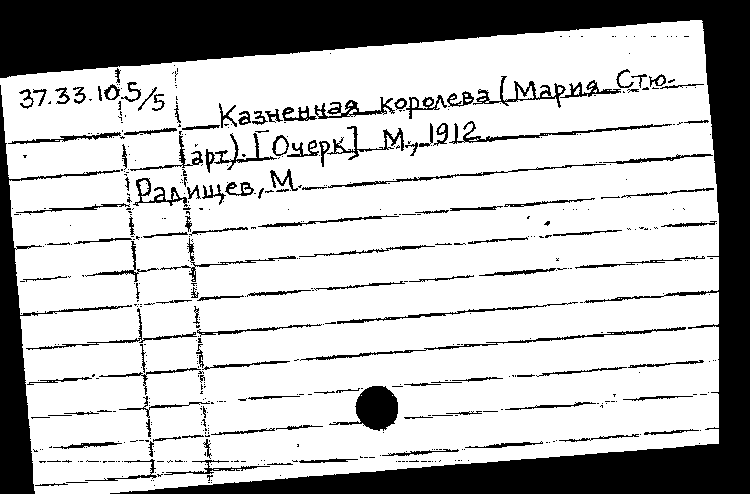 37.33.10.5/5
Казненная королева (Мария Стю-
арт). [Очерк] М., 1912
Радищев, М.